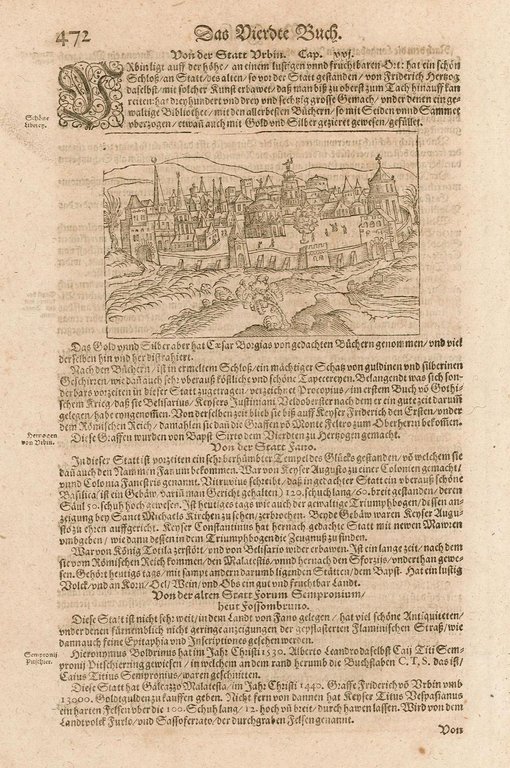 472
Das Vierdte Buch.
Von der Statt Urbin. Cap. xvj.
URbin ligt auff der höhe/ an einem lustigen vnnd fruchtbaren Ort: hat ein schön
Schloß/ an Statt/ des alten/ so vor der Statt gestanden/ von Friderich Hertzog
daselbst/ mit solcher Kunst erbawet/ daß man biß zu oberst zum Tach hinauff kan
reiten: hat dreyhundert vnd drey vnd sechtzig grosse Gemach/ vnder denen ein ge-
waltige Bibliothec/ mit den allerbesten Büchern/ so mit Seiden vnnd Sammet
vberzogen/ etwan auch mit Gold vnd Silber gezieret gewesen/ gefüllet.
Schöne
Das Gold vnnd Silber aber hat Cæsar Borgias von gedachten Büchern genommen/ vnd viel
derselben hin vnd her distrahiert.
Nach den Büchern/ ist in ermeltem Schloß/ ein mächtiger Schatz von guldinen vnd silberinen
Geschirren/ wie dañ auch sehr vberauß köstliche vnd schöne Tapetereyen. Belangendt was sich son-
derbars vorzeiten in dieser Statt zugetragen/ verzeichnet Procopius/ im ersten Buch võ Gothi-
schem Krieg/ daß sie Belisarius/ Keysers Justiniani Veldoberster nach dem er ein gute zeit darumb
gelegen/ habe eyngenommen. Von derselben zeit blieb sie biß auff Keyser Friderich den Ersten/ vnder
dem Römischen Reich/ damahlen sie dañ die Graffen vō Monte Feltro zum Oberherrn bekommen.
Diese Graffen wurden von Bapst Sixto dem Vierdten zu Hertzogen gemacht.
Hertzogen
von Urbin.
Von der Statt Fano.
In dieser Statt ist vorzeiten ein sehr berhümbter Tempel des Glücks gestanden/ võ welchem sie
dañ auch den Nammen Fanum bekommen. War von Keyser Augusto zu einer Colonien gemacht/
vnnd Colonia Fanestris genannt. Vitruvius schreibt/ daß in gedachter Statt ein vberauß schöne
Basilica (ist ein Gebäw/ dariñ man Gericht gehalten) 120. schuch lang/ 60. breit gestanden/ deren
Säul 50. schuh hoch gewesen. Ist heutiges tags wie auch der gewaltige Triumphbogen/ dessen an-
zeigung bey Sanct Michaels Kirchen zu sehen/ zerbrochen. Beyde Gebäw waren Keyser Augu-
sto zu ehren auffgericht. Keyser Constantinus hat hernach gedachte Statt mit newen Mawren
vmbgeben/ wie dann dessen in dem Triumphbogen die Zeugnuß zu finden.
War von König Totila zerstört/ vnd von Belisario wider erbawen. Ist ein lange zeit/ nach dem
sie vom Römischen Reich kommen/ den Malatestis/ vnnd hernach den Sfortzijs/ vnderthan gewe-
sen. Gehört heutigs tags/ mit sampt andern darumb ligenden Stätten/ dem Bapst. Hat ein lustig
Volck/ vnd an Korn/ Oel/ Wein/ vnd Obs ein gut vnd fruchtbar Landt.
Von der alten Statt Forum Sempronium/
heut Fossombruno.
Diese Statt ist nicht sehr weit/ in dem Landt von Fano gelegen/ hat viel schöne Antiquiteten/
vnder denen fürnemblich nicht geringe anzeigungen der gepflasterten Flaminischen Straß/ wie
dann auch feine Epitaphia vnd Inscriptiones gesehen werden.
Hieronymus Boldrinus hat im Jahr Christi 1530. Alberto Leandro daselbst Caij Titi Sem-
pronij Pitschierring gewiesen/ in welchem an dem rand herumb die Buchstaben C. T. S. das ist/
Caius Titius Sempronius/ waren geschnitten.
Sempronij
Pitschier.
Diese Statt hat Galeazzo Malatesta/ im Jahr Christi 1440. Graffe Friderich vō Urbin vmb
13000. Goldtgulden zu kauffen geben. Nicht fern von dannen hat Keyser Titus Vespasianus
ein harten Felsen vber die 100. Schuh lang/ 12. hoch vñ breit/ durch hawen lassen. Wird von dem
Landtvolck Furlo/ vnd Sassoferrato/ der durchgraben Felsen genannt.
Von